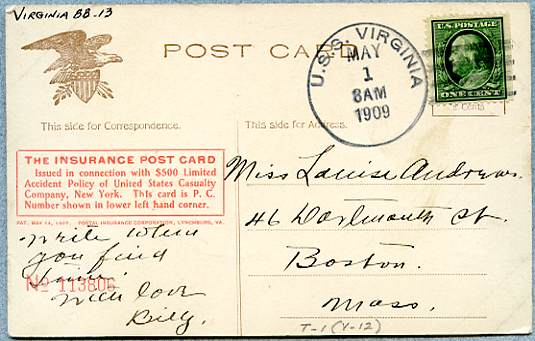 VIRGINIA BB-13
POST CARD
U.S.S. VIRGINIA
MAY
1
8AM
1909
U.S. POSTAGE
ONE CENT
This side for Correspondence.
This side for Address.
THE INSURANCE POST CARD
Issued in connection with $500 Limited
Accident Policy of United States Casualty
Company, New York. This card is P. C.
Number shown in lower left hand corner.
PAT. MAY 14, 1907. POSTAL INSURANCE CORPORATION, LYNCHBURG, VA.
Write when
you find
time
With love
Billy.
No 113806
Miss Louise Andrews.
46 Dartmouth St.
Boston.
Mass.
T-1 (Y-12)